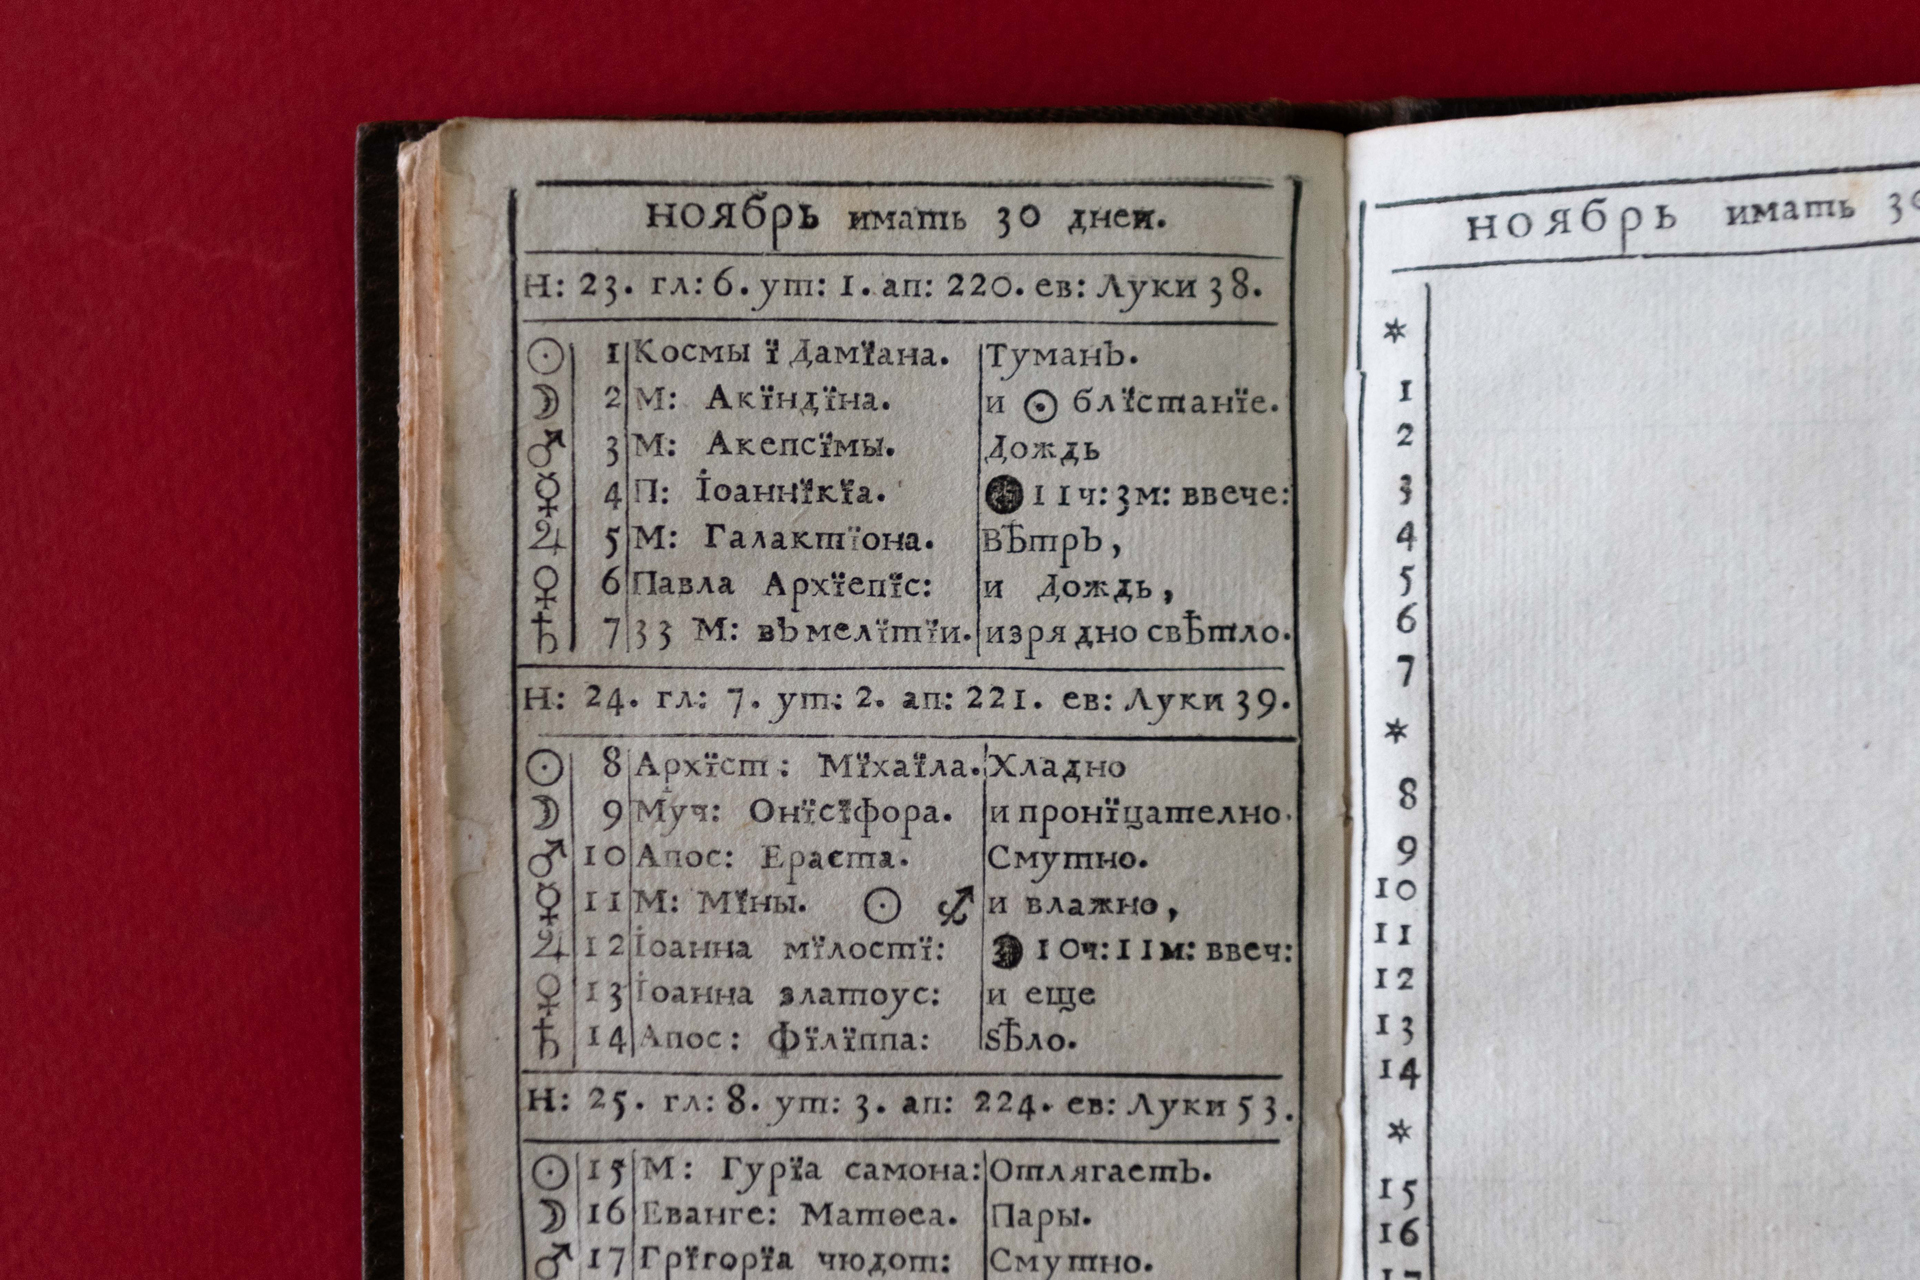 ноябрь имать 30 дней.
Н: 23. гл: 6. ут: 1. ап: 220. ев: Луки 38.
☉ 1 Космы ї Дамїана. Туманъ.
☽ 2 М: Акїндїна. и ☉ блїстанїе.
♂ 3 М: Акепсїмы. Дождь
☿ 4 П: Іоаннїкїа. 11ч: 3м: ввече:
♃ 5 М: Галактїона. вѣтръ,
♀ 6 Павла Архїепїс: и Дождь,
♄ 7 33 М: въ мелїтїи. изрядно свѣтло.
Н: 24. гл: 7. ут: 2. ап: 221. ев: Луки 39.
☉ 8 Архїст: Мїхаїла. Хладно
☽ 9 Муч: Онїсїфора. и пронїцателно.
♂ 10 Апос: Ераста. Смутно.
☿ 11 М: Мїны. ☉ ♐ и влажно,
♃ 12 Іоанна мїлостї: 10ч: 11м: ввеч:
♀ 13 Іоанна златоус: и еще
♄ 14 Апос: Фїлїппа: ѕѣло.
Н: 25. гл: 8. ут: 3. ап: 224. ев: Луки 53.
☉ 15 М: Гурїа самона: Отлягаетъ.
☽ 16 Еванге: Матѳеа. Пары.
♂ 17 Грїгорїа чюдот: Смутно.
ноябрь имать
*
1
2
3
4
5
6
7
*
8
9
10
11
12
13
14
*
15
16
17